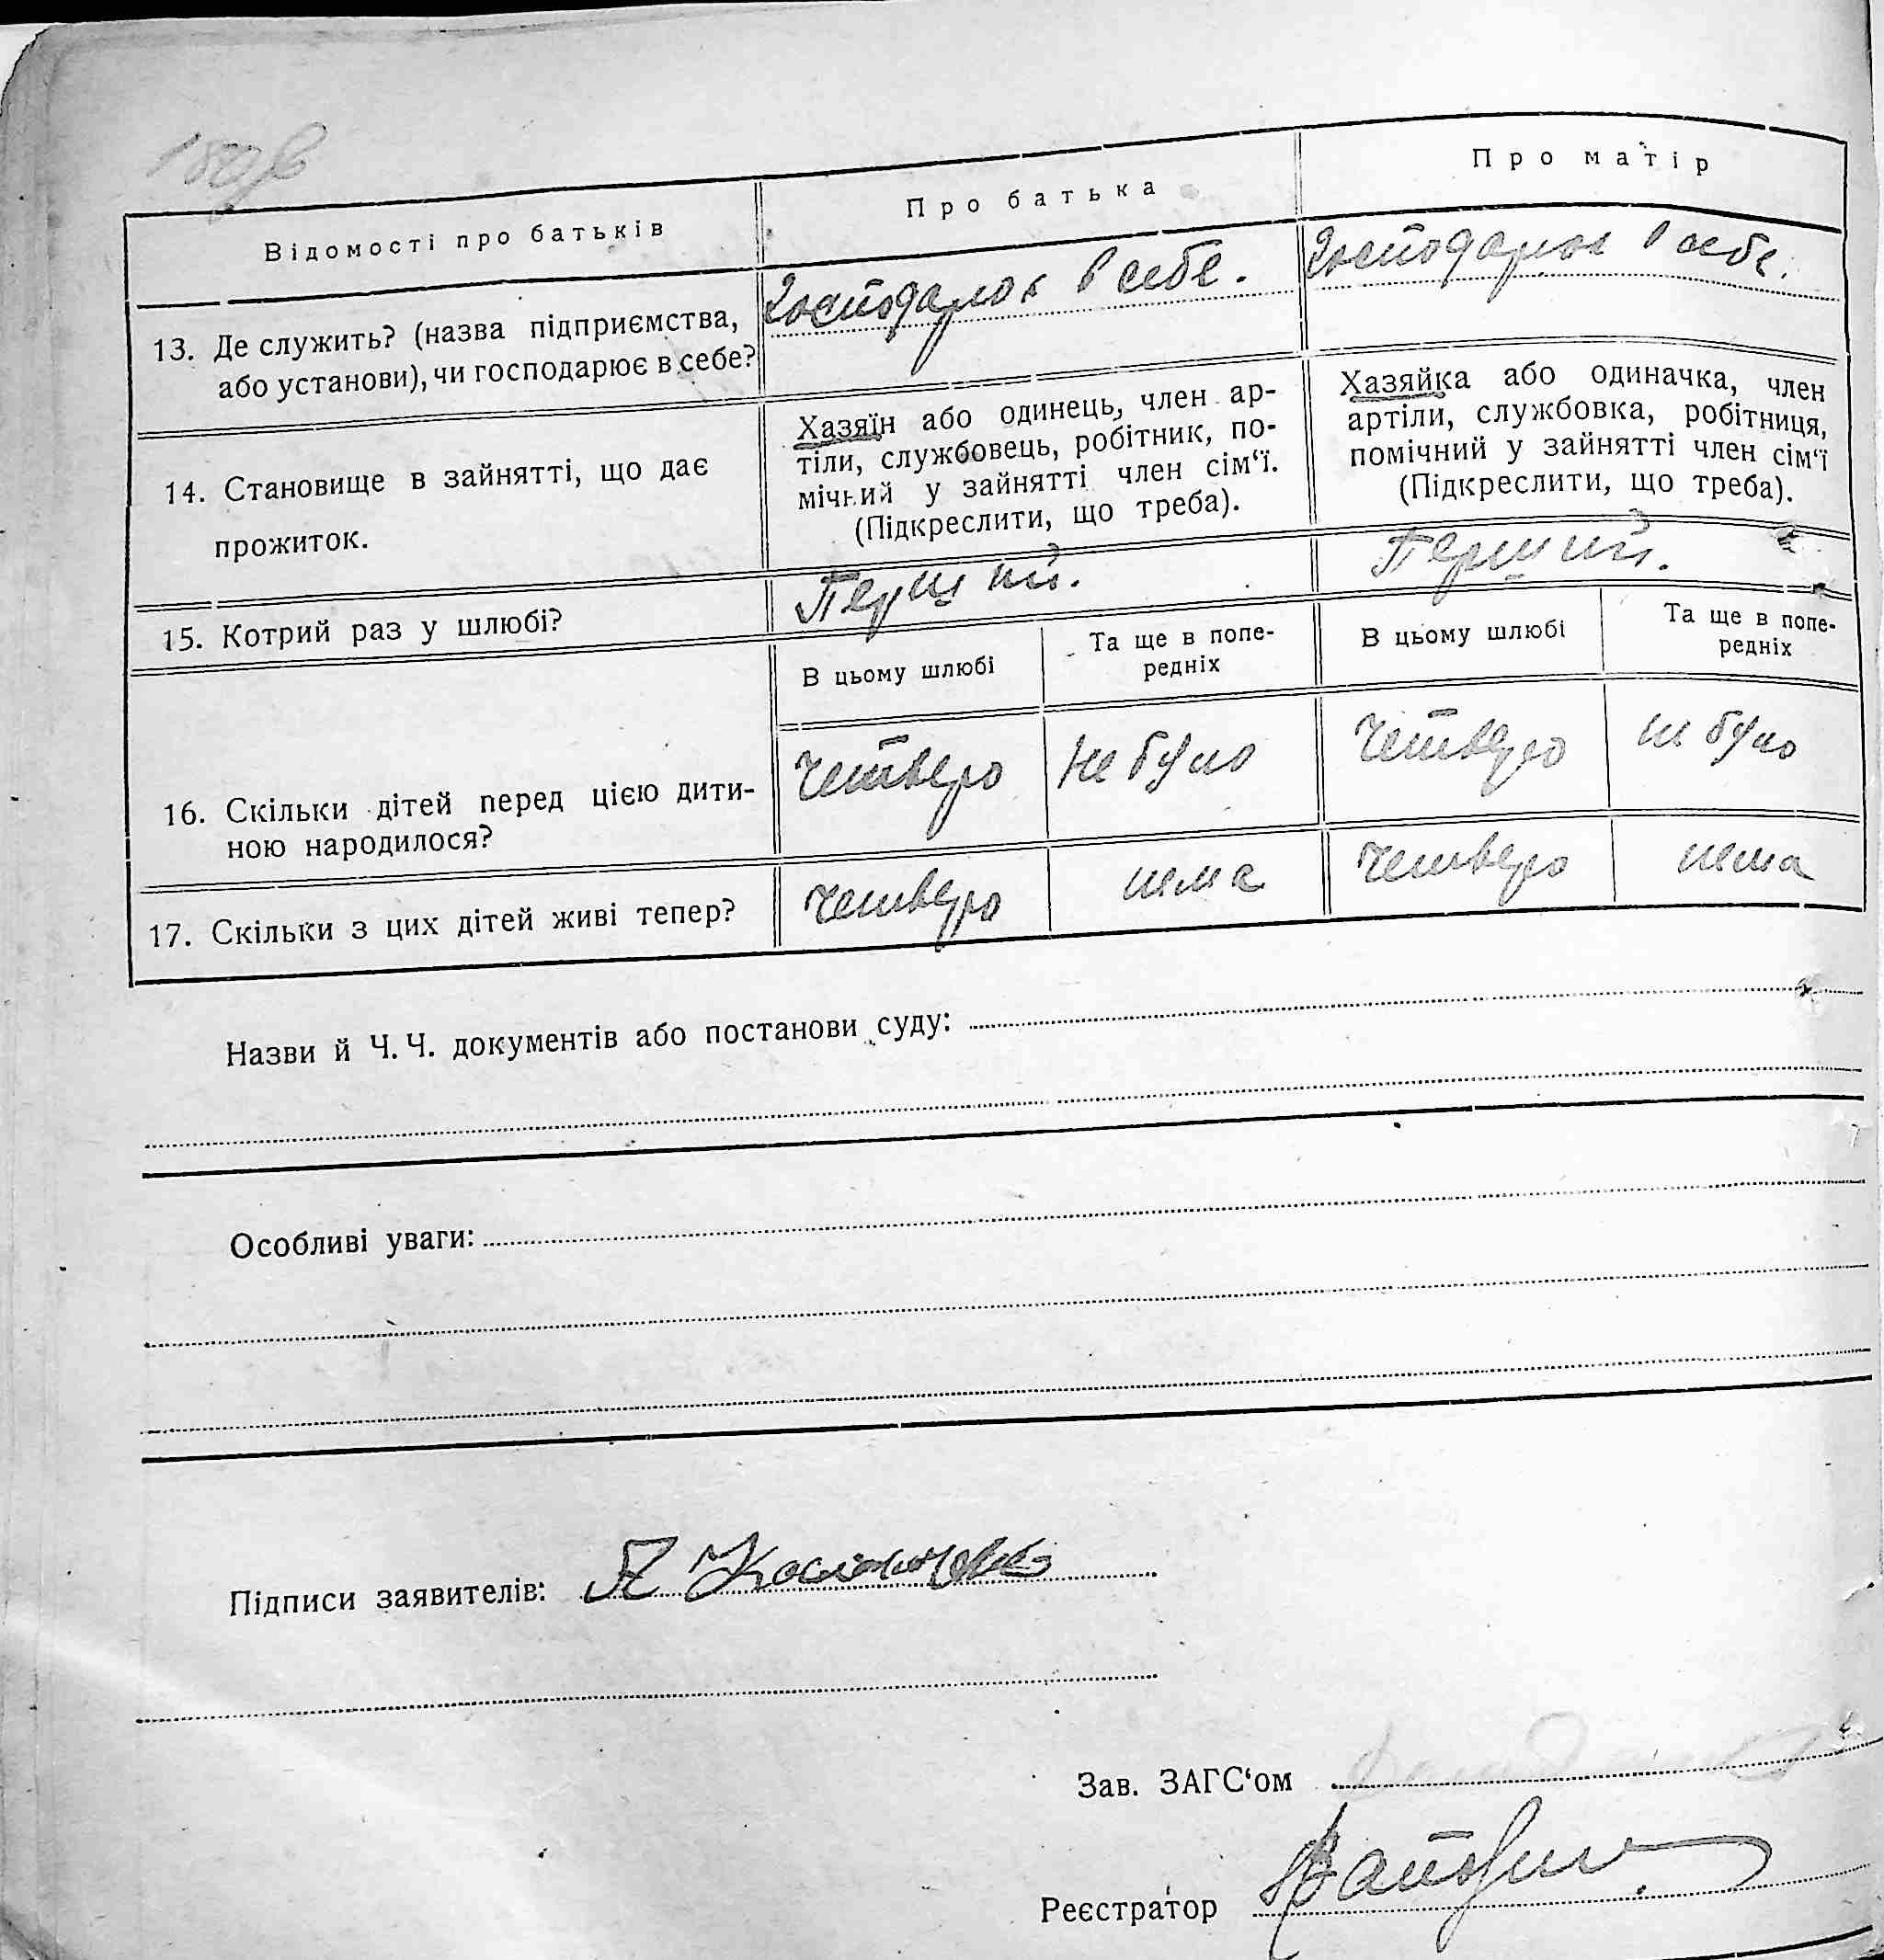 Відомості про батьків
Про батька
Про матір
13. Де служить? (назва підприємства,
або установи), чи господарює в себе?
Господарює в себе.
Господарює в себе.
14. Становище в зайнятті, що дає
прожиток.
Хазяїн або одинець, член ар-
тіли, службовець, робітник, по-
мічний у зайнятті член сім‘ї.
(Підкреслити, що треба).
Хазяйка або одиначка, член
артіли, службовка, робітниця,
помічний у зайнятті член сім‘ї
(Підкреслити, що треба).
15. Котрий раз у шлюбі?
Перший.
Перший.
В цьому шлюбі
Та ще в попе-
редніх
В цьому шлюбі
Та ще в попе-
редніх
16. Скільки дітей перед цією дити-
ною народилося?
Четверо
Не було
Четверо
не було
17. Скільки з цих дітей живі тепер?
Четверо
нема
Четверо
нема
Назви й Ч. Ч. документів або постанови суду:
Особливі уваги:
Підписи заявителів:
Зав. ЗАГС‘ом
Реєстратор